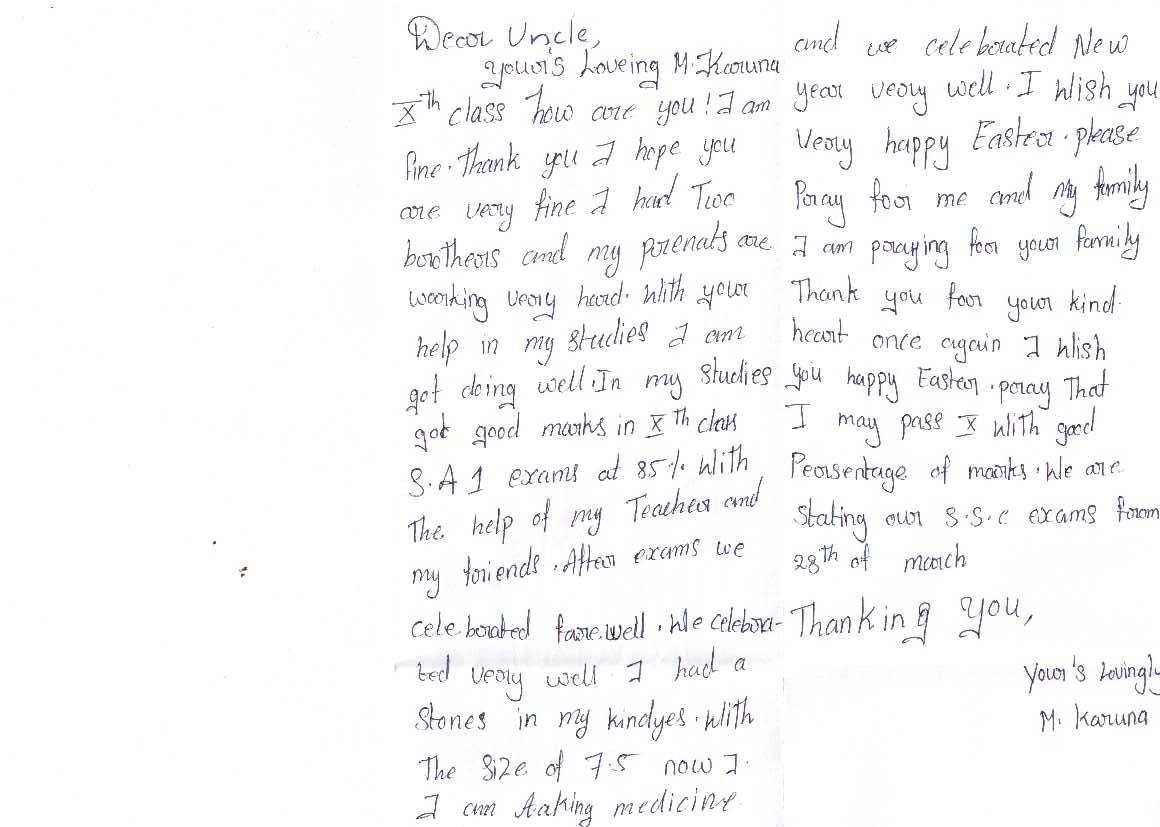 Dear Uncle,
your's Loveing M. Karuna
Xth class how are you! I am
fine. Thank you I hope you
are very fine I had Two
brothers and my prenats are
working very hard. With your
help in my studies I am
got doing well. In my studies
got good marks in Xth class
S.A 1 exams at 85% With
The help of my Teacher and
my friends. After exams we
celebrated farewell. We celebra-
ted very well. I had a
Stones in my kindyes. With
The Size of 7.5 now I.
I am taking medicine.
and we celebrated New
year very well. I Wish you
Very happy Easter. please
Pray for me and My family
I am praying for your family
Thank you for your kind.
heart once again I Wish
you happy Easter. pray That
I may pass X With good
Persentage of marks. We are
Stating our S.S.C exams from
28th of march
Thanking you,
Your's Lovingly
M. Karuna